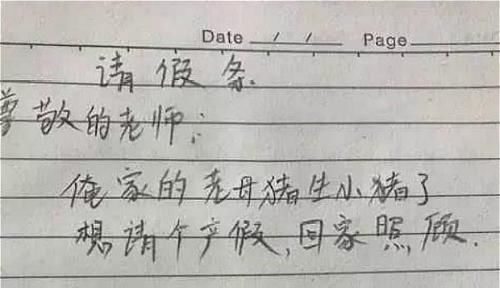 Date / / Page
请假条.
尊敬的老师:
俺家的老母猪生小猪了
想请个产假,回家照顾.